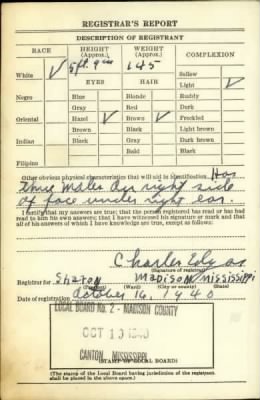 REGISTRAR'S REPORT
DESCRIPTION OF REGISTRANT
RACE HEIGHT (Approx.) WEIGHT (Approx.) COMPLEXION
White ✓ 5 ft. 9 in 145 Sallow
EYES HAIR Light ✓
Negro Blue Blonde Ruddy
Gray Red Dark
Oriental Hazel ✓ Brown ✓ Freckled
Brown Black Light brown
Indian Black Gray Dark brown
Bald Black
Filipino
Other obvious physical characteristics that will aid in identification Has
three moles on right side
of face under right ear.
I certify that my answers are true; that the person registered has read or has had
read to him his own answers; that I have witnessed his signature or mark and that
all of his answers of which I have knowledge are true, except as follows:
Charles
(Signature of registrar)
Registrar for Sharon Madison Mississippi
(Precinct) (Ward) (City or county) (State)
Date of registration October 16, 1940
LOCAL BOARD No. 2 - MADISON COUNTY
OCT 1940
CANTON, MISSISSIPPI
(STAMP OF LOCAL BOARD)
(The stamp of the Local Board having jurisdiction of the registrant
shall be placed in the above space.)